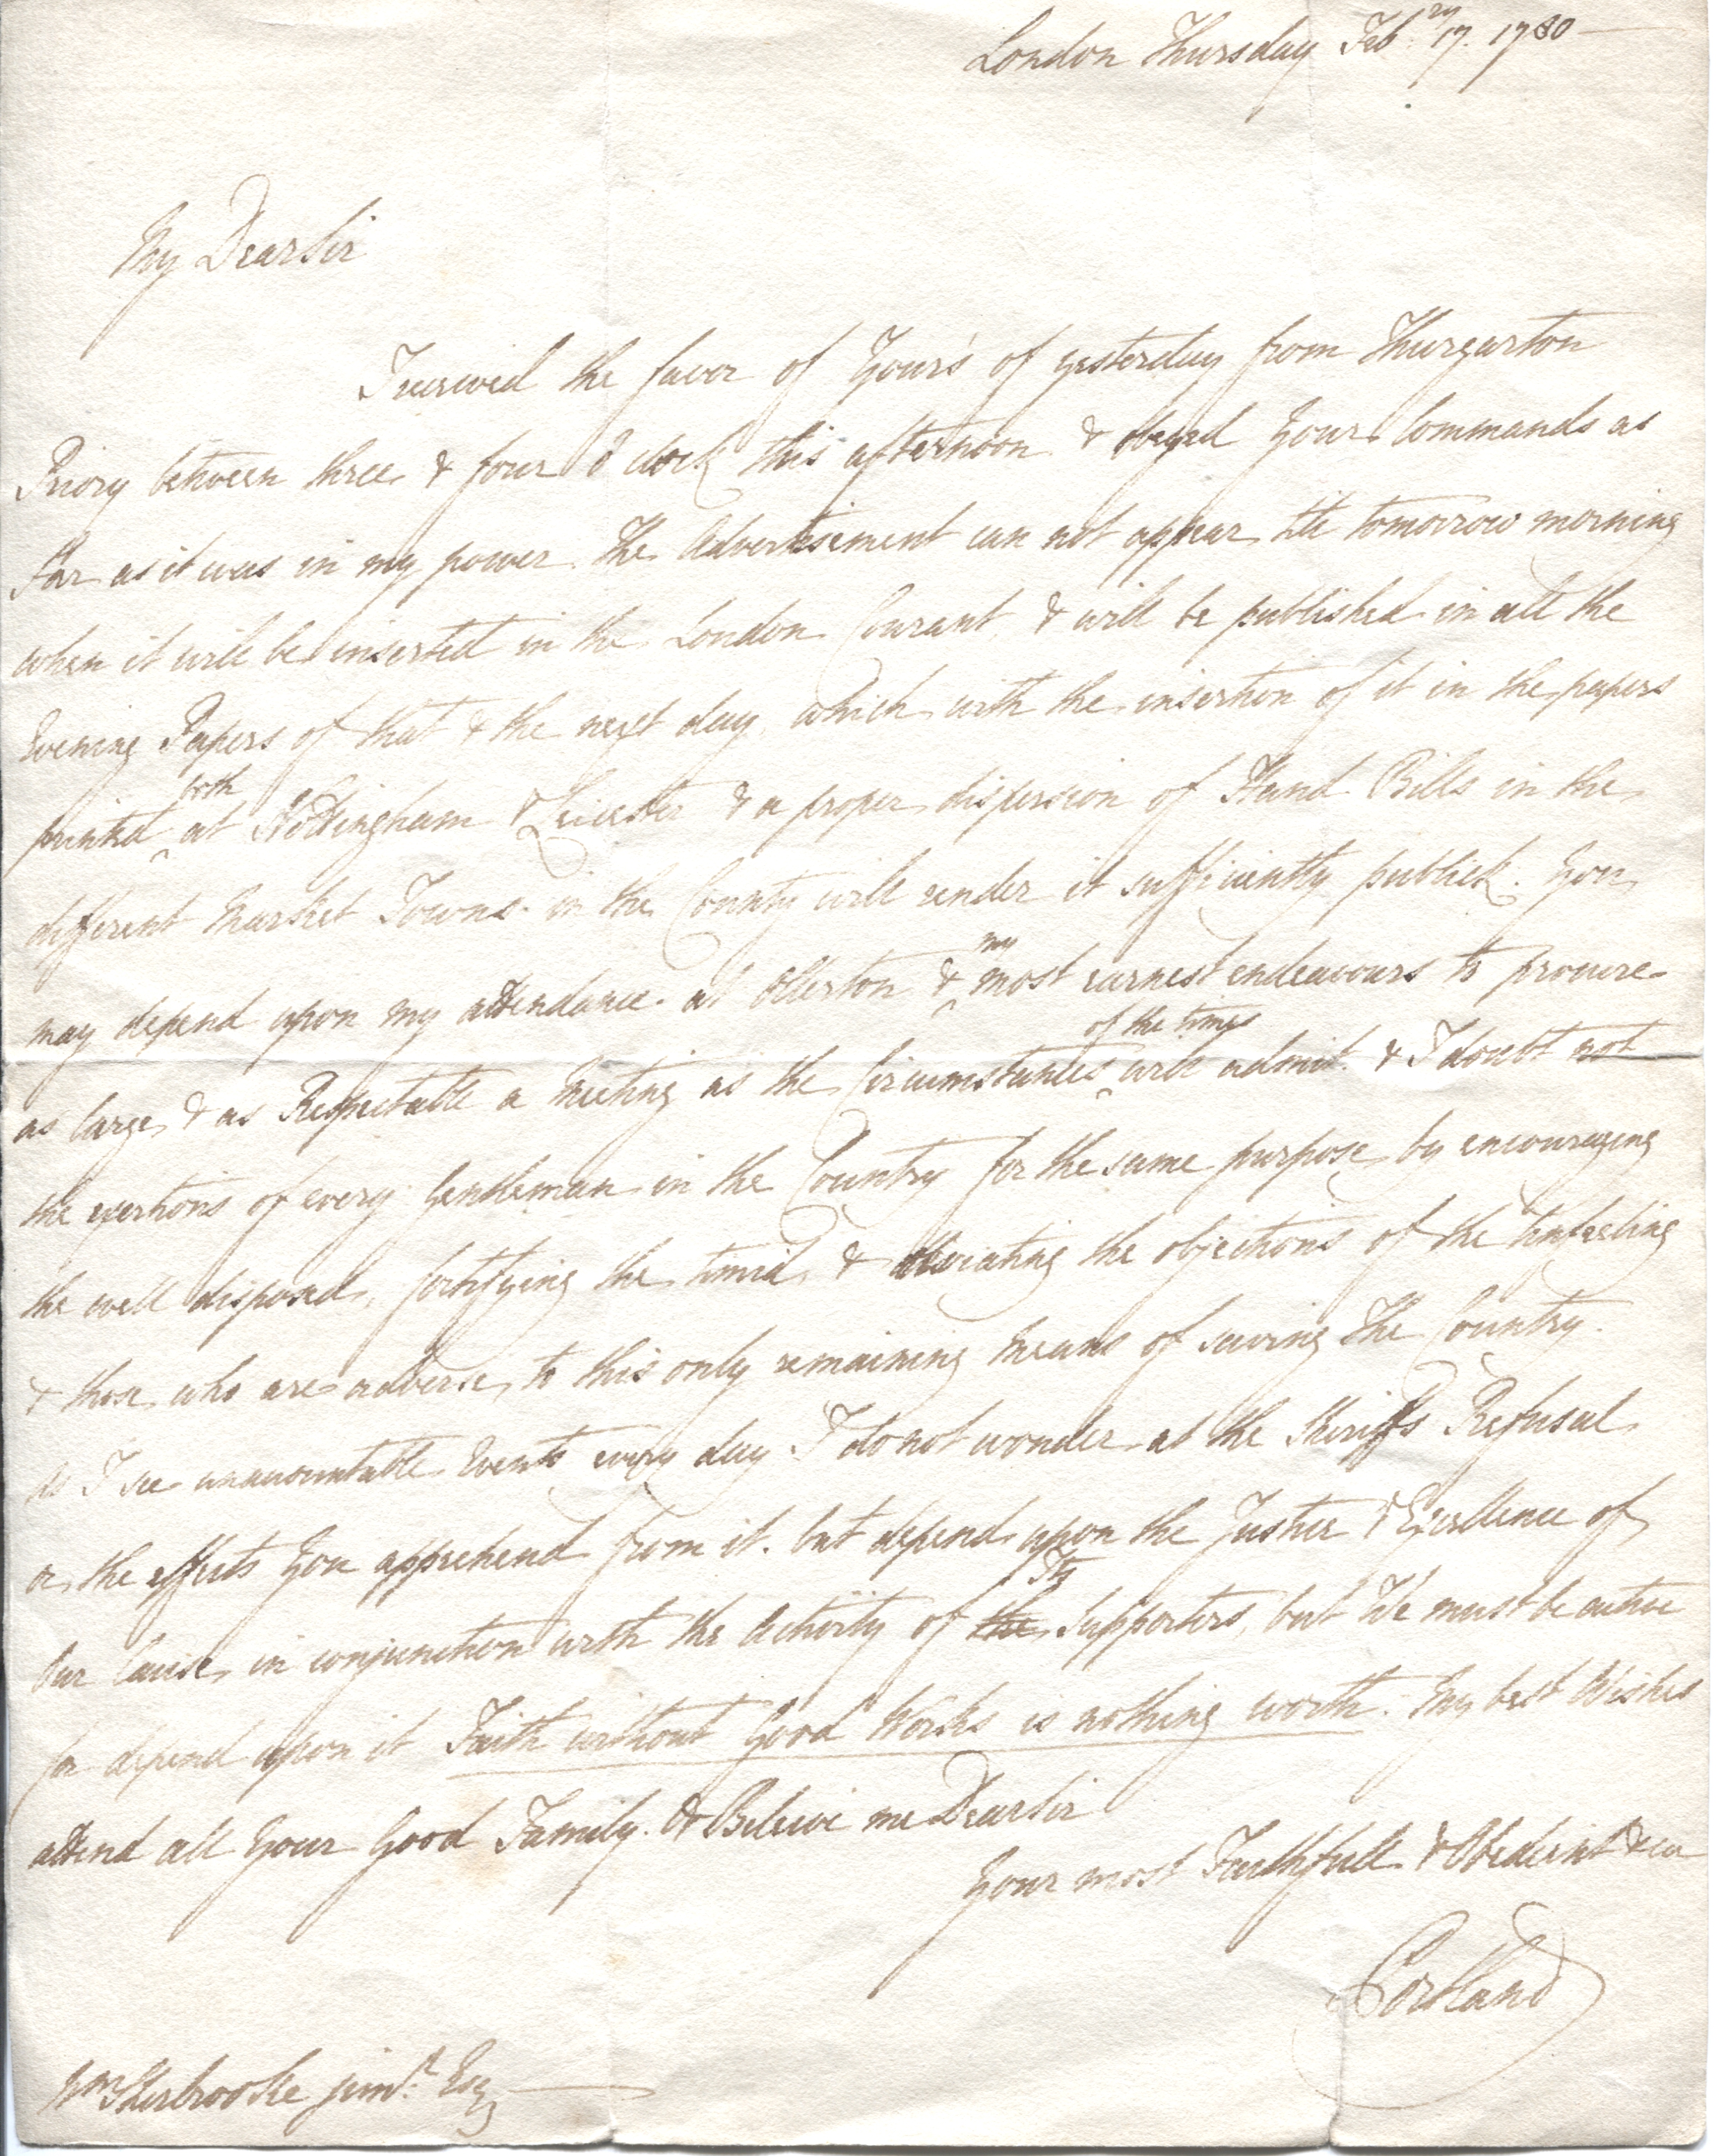 London Thursday Feb:ry 17. 1780
My Dear Sir
I received the favor of Your's of yesterday from Thurgarton
Priory between three & four o'clock this afternoon & obeyed Your Commands as
far as it was in my power. The Advertisement can not appear till tomorrow morning
when it will be inserted in the London Courant, & will be published in all the
Evening Papers of that & the next day, which with the insertion of it in the papers
both
printed ^ at Nottingham & Leicester & a proper dispersion of Hand Bills in the
different Market Towns in the County will render it sufficiently publick. You
my
may depend upon my attendance at Ollerton & ^ most earnest endeavours to procure
of the times
as large & as Respectable a Meeting as the Circumstances ^ will admit. & I doubt not
the exertions of every Gentleman in the Country for the same purpose by encouraging
the well disposed, fortifying the timid, & obviating the objections of the Unfeeling
& those who are adverse to this only remaining Means of saving The Country.
As I see unaccountable Events every day I do not wonder at the Sheriffs Refusal
or the effects You apprehend from it. but depend upon the Justice & Excellence of
Its
Our Cause in conjunction with the Activity of the Supporters, but We must be active
for depend upon it Faith without Good Works is nothing worth. My best Wishes
attend all Your Good Family. & Beleive me Dear Sir
Your most Faithfull & Obedient &ca
Portland
Wm Sherbrooke junr. Esq